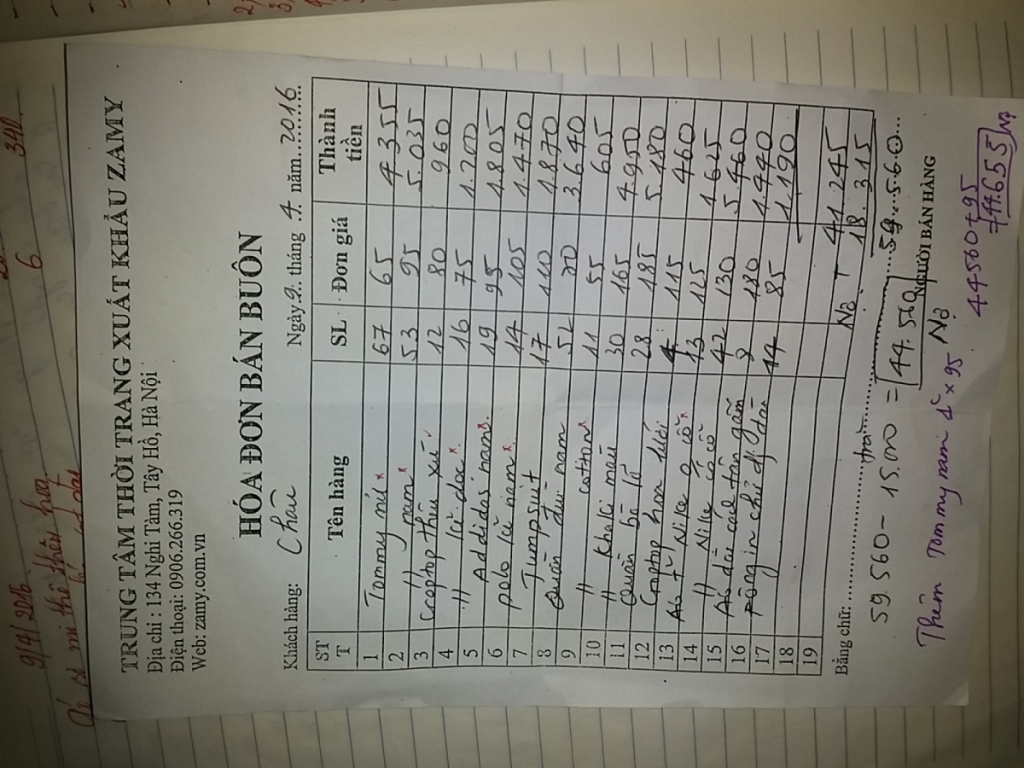 9/4/2016
6 340
TRUNG TÂM THỜI TRANG XUẤT KHẨU ZAMY
Địa chỉ : 134 Nghi Tàm, Tây Hồ, Hà Nội
Điện thoại: 0906.266.319
Web: zamy.com.vn
HÓA ĐƠN BÁN BUÔN
Khách hàng: Châu Ngày 9 tháng 4 năm 2016
STT Tên hàng SL Đơn giá Thành tiền
1 Tommy nữ x 67 65 4355
2 " nam x 53 95 5.035
3 Croptop thêu xù 12 80 960
4 " kẻ dọc x 16 75 1.200
5 Addidas nam x 19 95 1.805
6 polo kẻ nam x 14 105 1.470
7 Jumpsuit 17 110 1.870
8 Quần đũi nam 52 70 3.640
9 " cotton x 11 55 605
10 " Khaki mẫu 30 165 4.950
11 Quần bò 28 185 5.180
12 Croptop hoa 4 115 460
13 Áo Nike 0 cổ x 13 125 1.625
14 " Nike có cổ 42 130 5.460
15 Áo dài cách tân gấm 8 180 1.440
16 14 85 1.190
17
18
19
41.245
Nợ + 18.315
Bằng chữ: 59.560
59.560 - 15.000 = 44.560
NGƯỜI BÁN HÀNG
Nợ
Thêm Tommy nam 1c x 95
44560 + 95
= 44.655